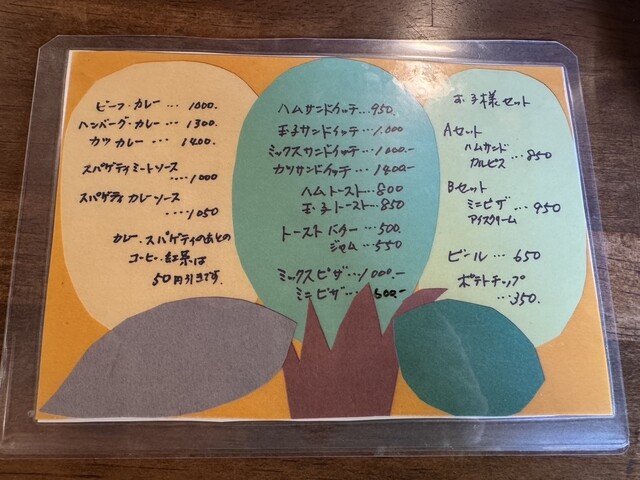 ビーフ・カレー … 1000.
ハンバーグ・カレー … 1300
カツカレー … 1400.
スパゲティミートソース
････1000
スパゲティカレーソース
････1050
カレー、スパゲティのあとの
コーヒ、紅茶は
50円引きです.
ハムサンドイッチ…950.
玉子サンドイッチ…1.000
ミックスサンドイッチ…1000.-
カツサンドイッチ…1400.-
ハムトースト…800
玉子トースト…850
トーストバター…500.
ジャム…550
ミックスピザ…1000.-
ミニピザ…600.-
お子様セット
Aセット
ハムサンド
カルピス …850
Bセット
ミニピザ …950
アイスクリーム
ビール…650
ポテトチップ
…350.